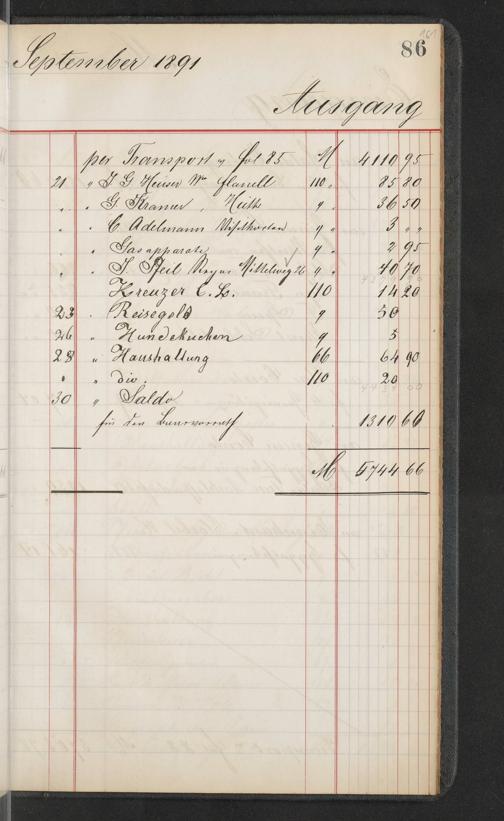 86
September 1891
Ausgang
per Transport v fol 85 M 4110 95
21 " J G Heuser Ww flanell 110 85 80
" " G Kramer, Hüte " 36 50
" " C Adelmann Visitkarten " 3 " "
" " Gasapparate " 2 95
" " J. Mittelweg " 40 70
Kreuzer C. L. 110 14 20
23 " Reisegeld " 50
26 " Hundekuchen " 5
28 " Haushaltung 66 64 90
" " div. 110 20
30 " Saldo
für den Baarvorrath 1310 66
M 5744 66